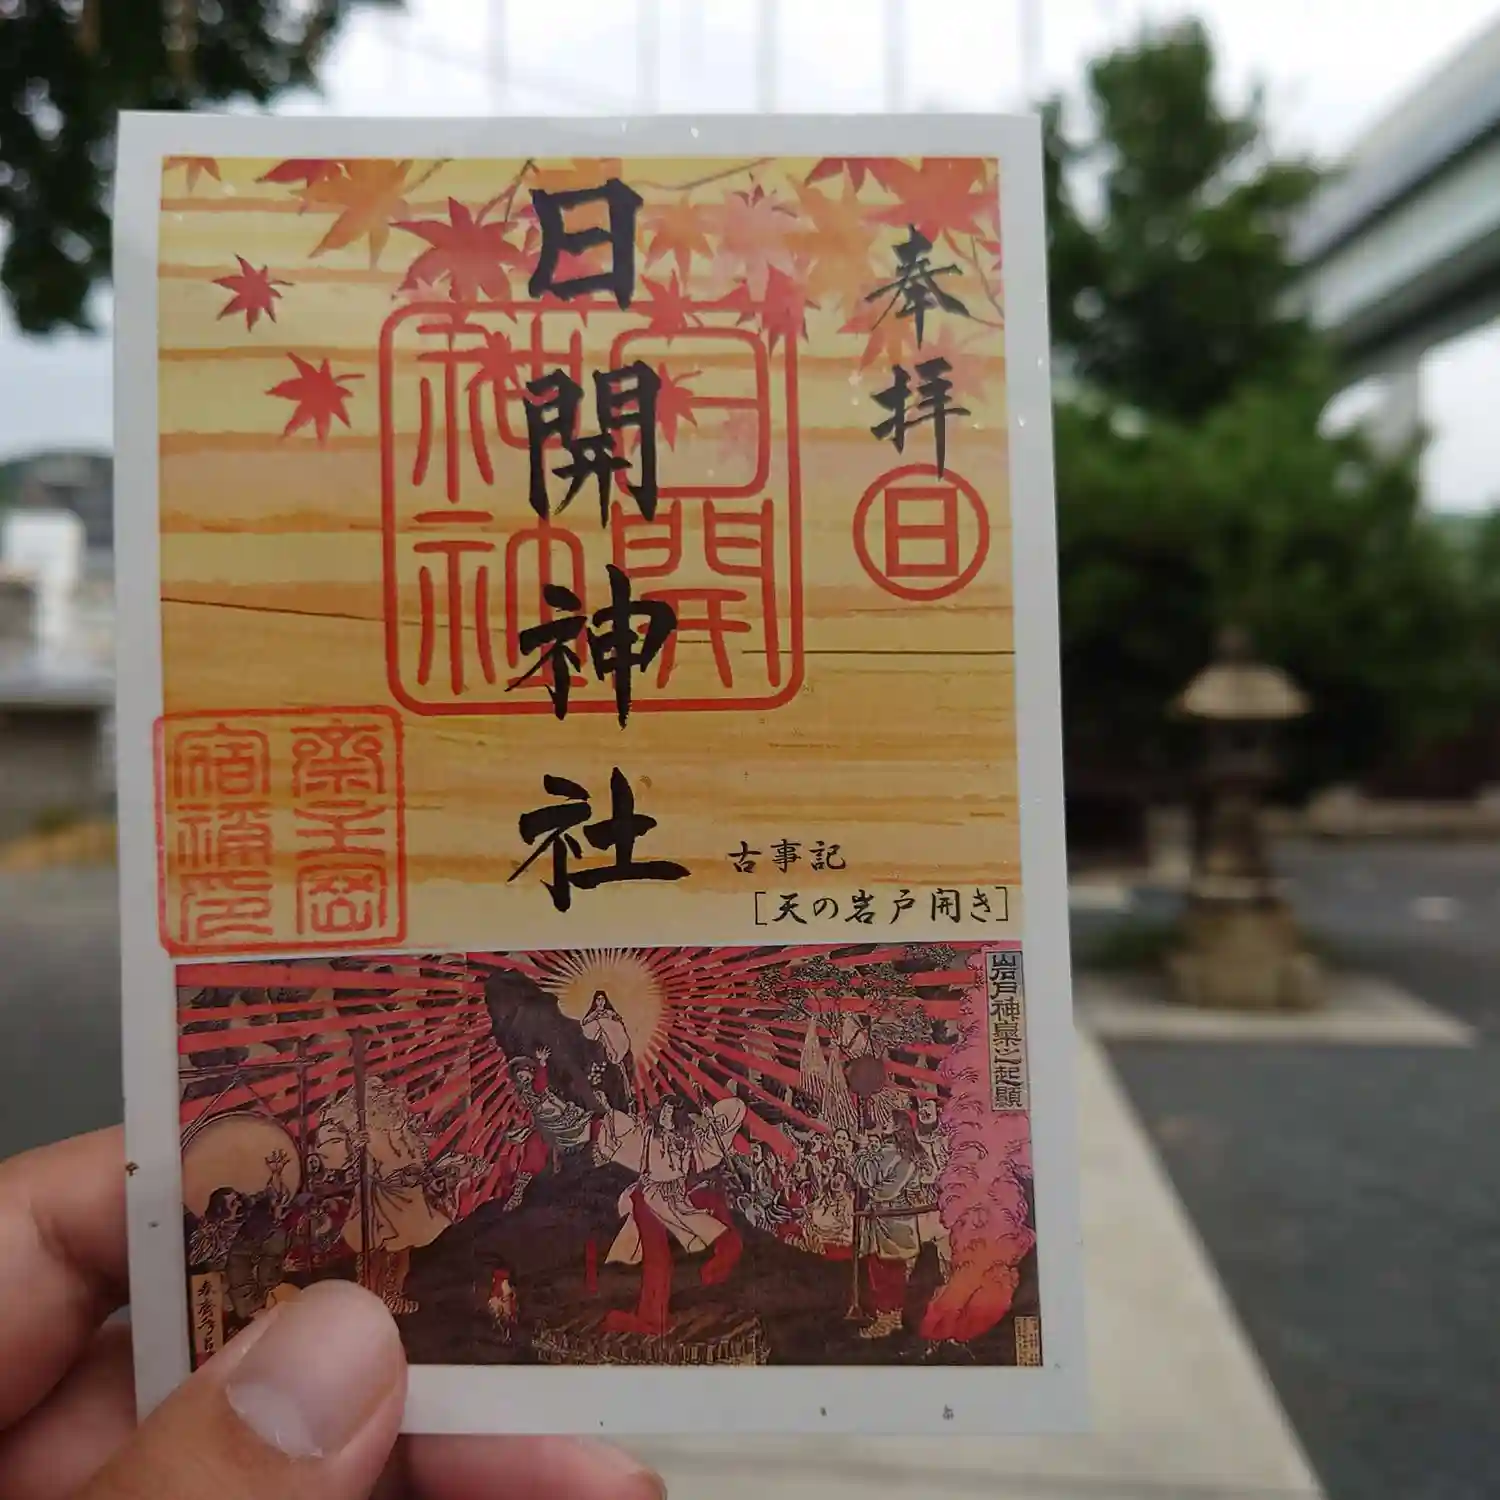 奉拝
日
日開神社
日開
神社
古事記
［天の岩戸開き］
岩戸神楽之起顕